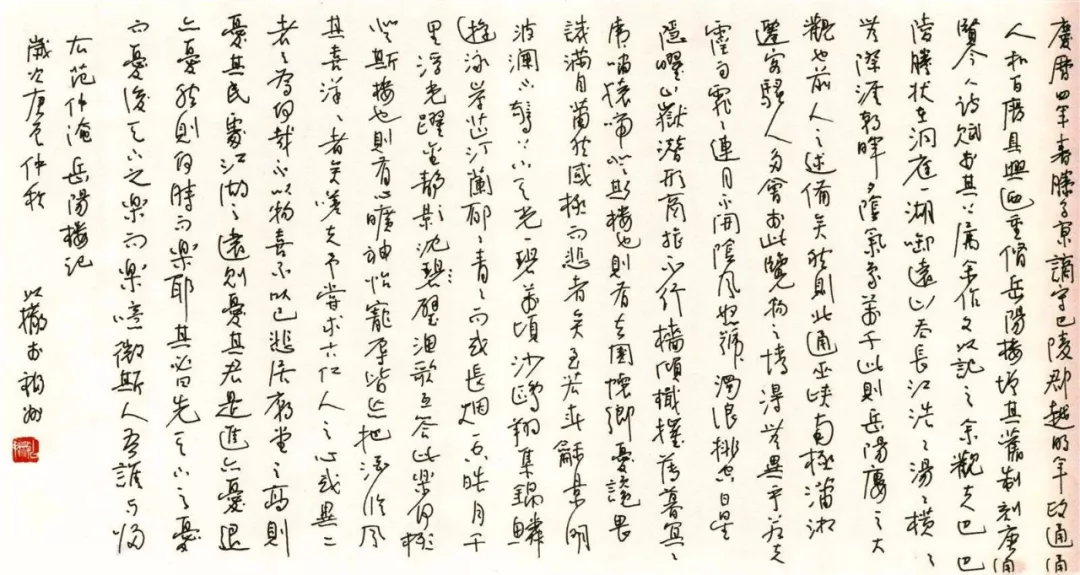 慶曆四年春滕子京謫守巴陵郡越明年政通
人和百廢具興迺重修岳陽樓增其舊制刻唐
賢今人詩賦於其上屬余作文以記之余觀夫巴
陵勝狀在洞庭一湖銜遠山吞長江浩〻湯〻橫〻
無際涯朝暉夕陰氣象萬千此則岳陽樓之大
觀也前人之述備矣然則北通巫峽南極瀟湘
遷客騷人多會於此覽物之情得無異乎若夫
霪雨霏〻連月不開陰風怒號濁浪排空日星
隱曜山嶽潛形商旅不行檣傾檝摧薄暮冥〻
虎嘯猿啼登斯樓也則有去國懷鄉憂讒畏
譏滿目蕭然感極而悲者矣至若春和景明
波瀾不驚上下天光一碧萬頃沙鷗翔集錦鱗
游泳岸芷汀蘭郁〻青〻而或長烟一空皓月千
里浮光躍金靜影沈碧璧漁歌互答此樂何極
登斯樓也則有心曠神怡寵辱皆忘把酒臨風
其喜洋〻者矣嗟夫予嘗求古仁人之心或異二
者之為何哉不以物喜不以己悲居廟堂之高則
憂其民處江湖之遠則憂其君是進亦憂退
亦憂然則何時而樂耶其必曰先天下之憂
而憂後天下之樂而樂噫微斯人吾誰與歸
右范仲淹岳陽樓記
歲次庚 仲秋